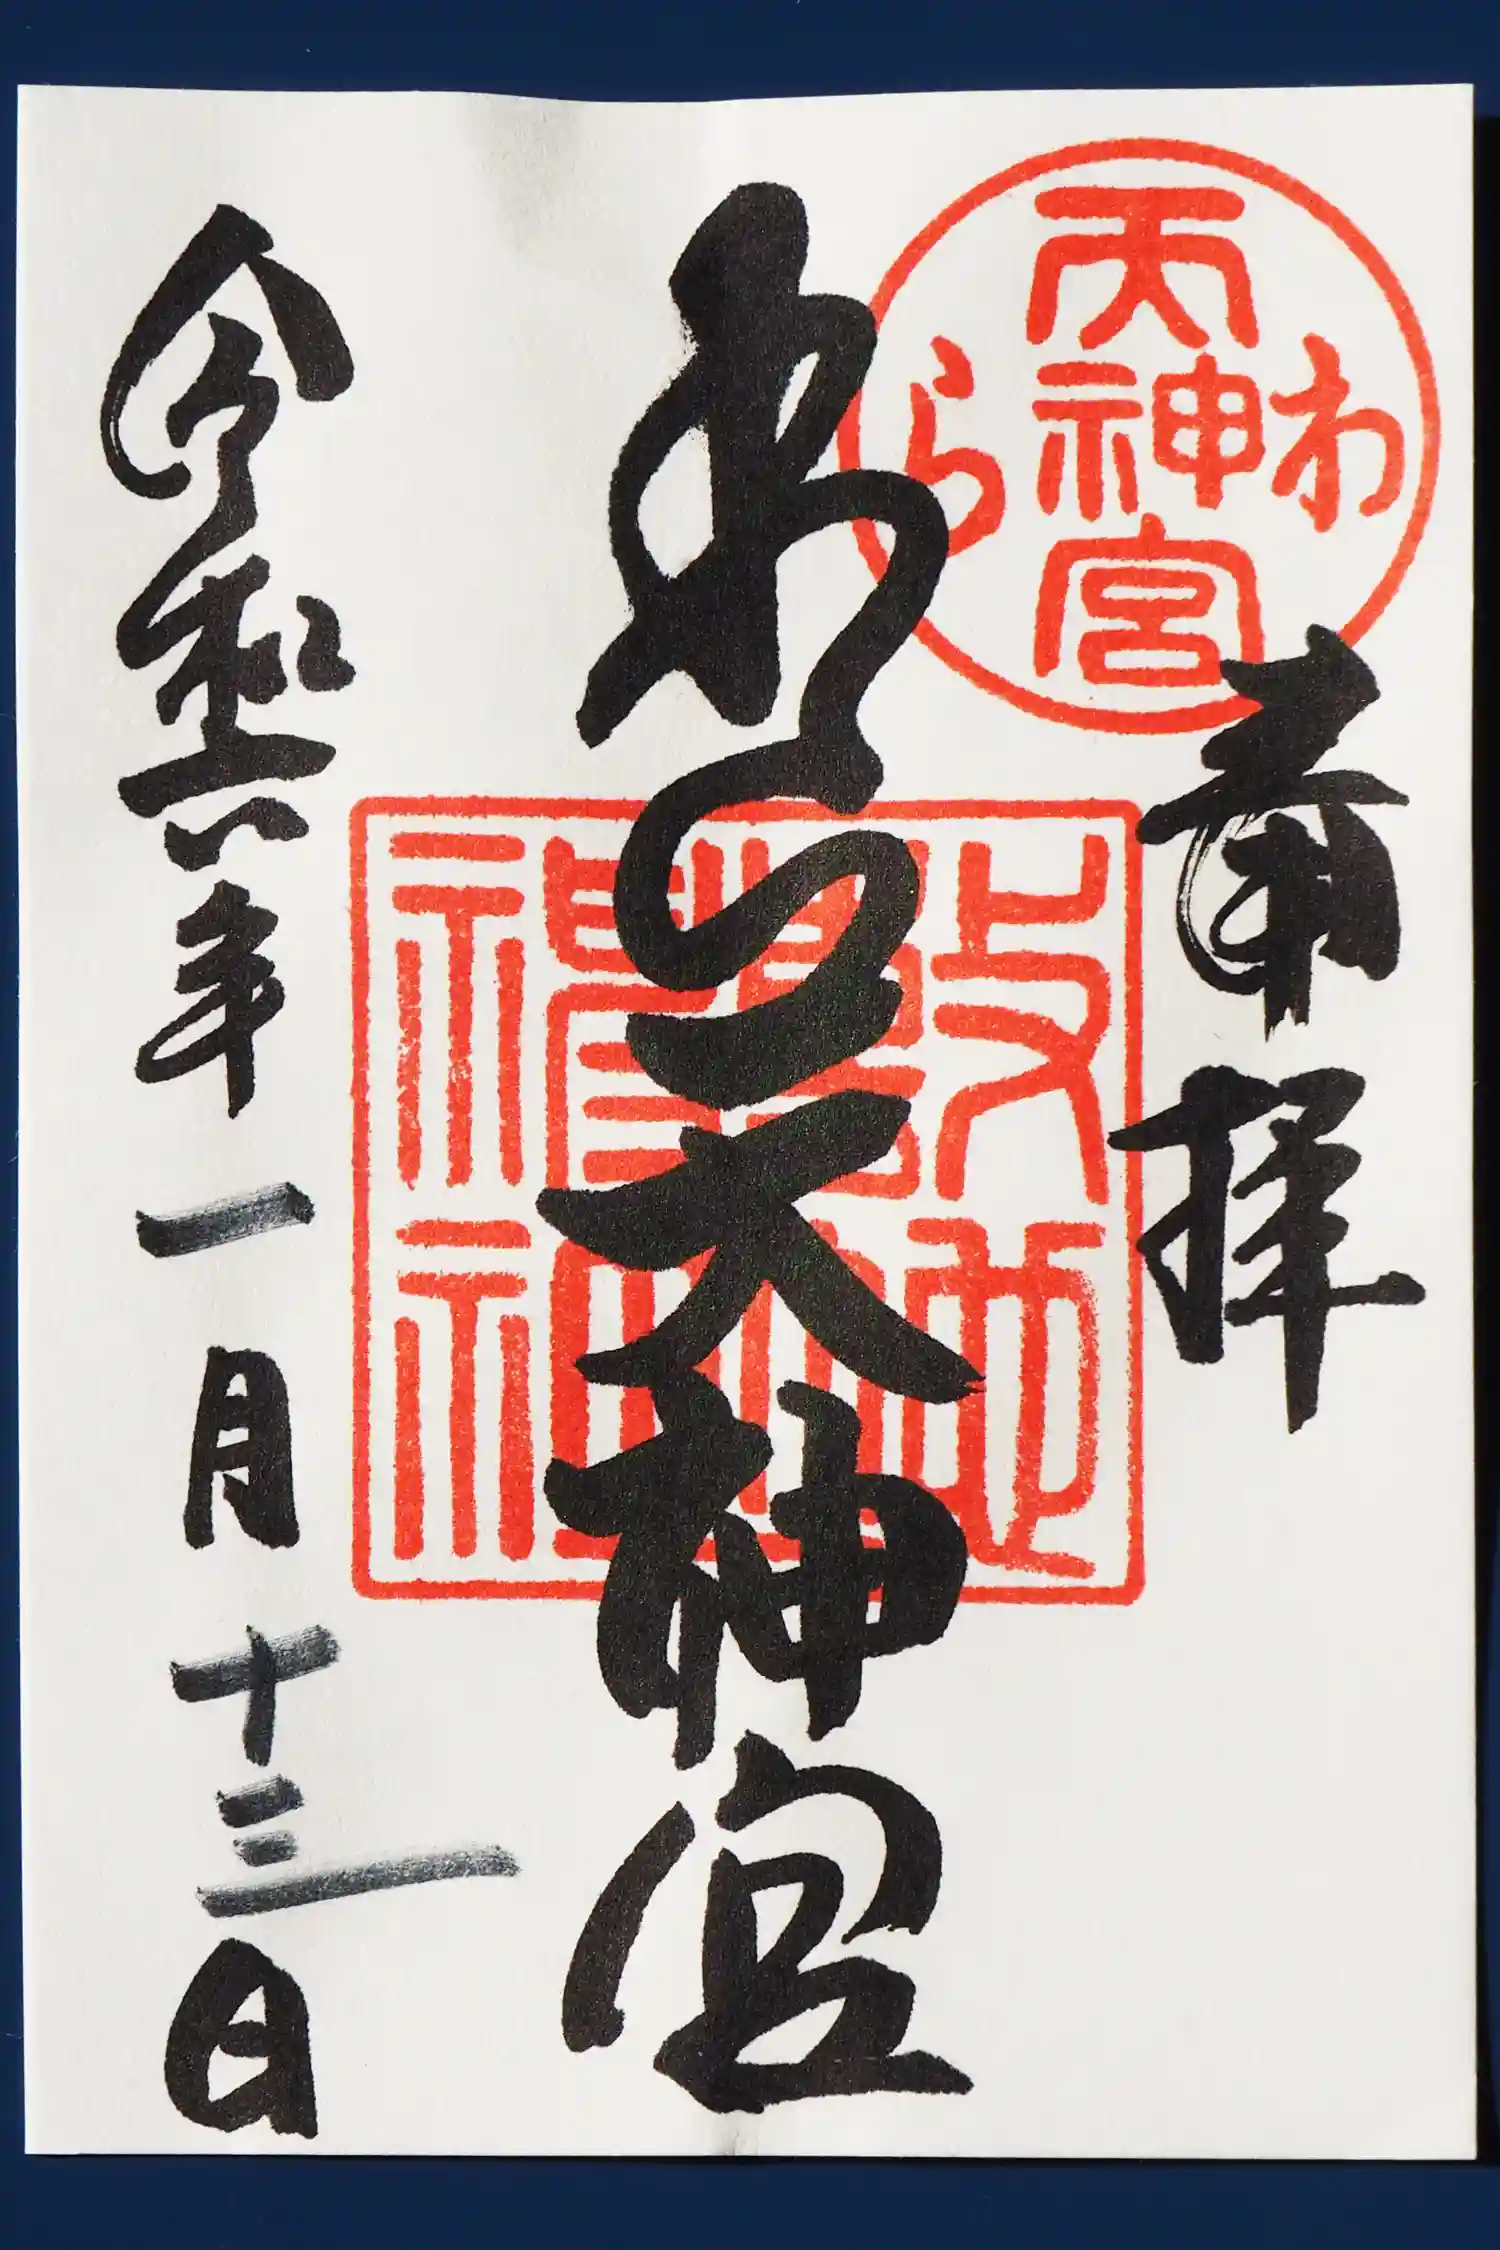 奉拝
わら
天神宮
敷地
わら天神宮
令和六年一月十三日